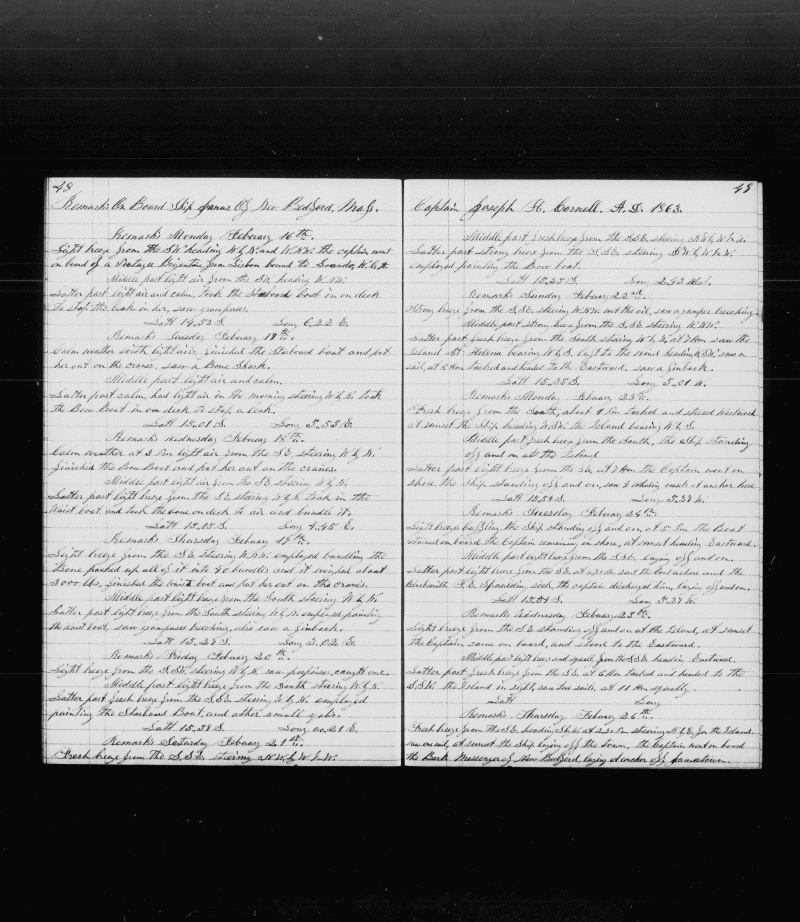 48
Remarks On Board Ship James Of New Bedford, Mass.
Remarks Monday Febuary 16th.
Light breeze from the SW heading W by N and W.N.W. the captain went
on board of a Portagee Brigantine from Lisbon bound to Loando, W.C.A.
Middle part light air from the SW heading W.N.W.
Latter part light air and calm, took the Starboard boat in on deck
to stop the leak in her, saw grampuses.
Latt 14.53 S. Long 6.22 E.
Remarks Tuesday Febuary 17th.
Calm weather with light airs, finished the Starboard boat and put
her out on the cranes, saw a Bone Shark.
Middle part light air and calm.
Latter part calm, had light air in the morning steering W by N. took
the Bow Boat in on deck to stop a leak.
Latt 15.01 S. Long 5.55 E.
Remarks Wednesday Febuary 18th.
Calm weather at 3 Pm light air from the S.E. steering W by N.
finished the Bow Boat and put her out on the cranes.
Middle part light air from the S.E. steering W by N.
Latter part light breeze from the S.E. steering W by N. took in the
Waist boat, and took the bone on deck to air and bundle it.
Latt 15.15 S. Long 4.45 E.
Remarks Thursday Febuary 19th.
Light breeze from the S.E. steering W.N.W. employed bundling the
Bone packed up all of it into 40 bundles and it weighed about
3000 lbs, finished the waist boat and put her out on the cranes.
Middle part light breeze from the South steering W by N.
Latter part light breeze from the South steering W by N. employed painting
the waist boat, saw grampuses breaching, also saw a finback.
Latt 15.28 S. Long 3.02 E.
Remarks Friday Febuary 20th.
Light breeze from the S.SW. steering W by N. saw porpoises, caught one.
Middle part light breeze from the South steering W by N.
Latter part fresh breeze from the S.S.E. steering W by N. employed
painting the Starboard Boat, and other small jobs.
Latt 15.38 S. Long 00.21 E.
Remarks Saturday Febuary 21st.
Fresh breeze from the S.S.E. steering N.W. by W ½ W.
48
Captain Joseph H. Cornell. A.D. 1863.
Middle part fresh breeze from the S.S.E. steering
Latter part strong breeze from the S.S.E. steering
employed painting the Bow boat.
Latt 15.25 S. Long 2.43 West.
Remarks Sunday Febuary 22nd.
Strong breeze from the S.S.E. steering W.N.W. wet the oil, saw a grampus breaching.
Middle part strong breeze from the S.S.E. steering W.N.W.
Latter part fresh breeze from the South steering W by N, at 7 Am saw the
Island St Helena bearing W by S. luft to the wind heading W.SW. saw a
sail, at 8 Am tacked and headed to the Eastward, saw a finback.
Latt 15.35 S. Long 5.01 W.
Remarks Monday Febuary 23rd.
Fresh breeze from the South, about 1 Pm tacked and steered westward
at sunset the Ship heading W.SW. the Island bearing W by S.
Middle part fresh breeze from the South, the ship standing
off and on at the Island
Latter part light breeze from the S.E. at 7 Am the Captain went on
shore, the Ship standing off and on, saw 4 whaling vessels at anchor here
Latt 15.54 S. Long 5.37 W.
Remarks Tuesday Febuary 24th.
Light breeze baffling, the Ship standing off and on, at 5 Pm the Boat
returned on board, the Captain remaining on shore, at sunset heading Eastward.
Middle part light breeze from the S.S.E. laying off and on.
Latter part light breeze from the S.E. at sent the boat ashore and the
Blacksmith Spauldin, sick, the captain discharged him, laying off and on.
Latt 15.54 S. Long 5.37 W.
Remarks Wednesday Febuary 25th.
Light breeze from the S.E. standing off and on at the Island, at sunset
the Captain came on board, and stood to the Eastward.
Middle part light breeze and squalls from the S.S.E. heading Eastward.
Latter part fresh breeze from the S.E. at 6 Am tacked and headed to the
S.SW. the Island in sight, saw two sails, at 11 Am squally.
Latt Long
Remarks Thursday Febuary 26th.
Fresh breeze from the S.E. heading at 2.30 Pm steering for the Island
saw one sail, at sunset the Ship laying off the town, the Captain went on board
the Bark Messenger of New Bedford, laying at anchor off Jamestown.